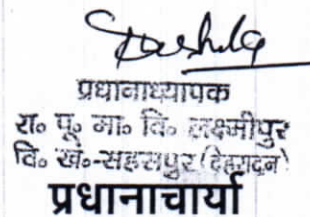 प्रधानाध्यापक
रा० पू० मा० वि० लक्ष्मीपुर
वि० खं०-सहसपुर (देहरादून)
प्रधानाचार्या